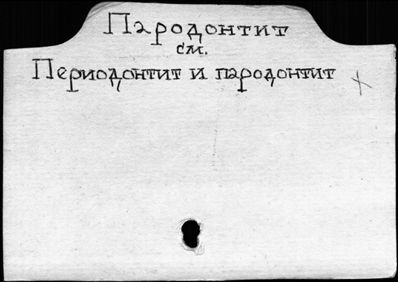 Пародонтит
см.
Периодонтит и пародонтит